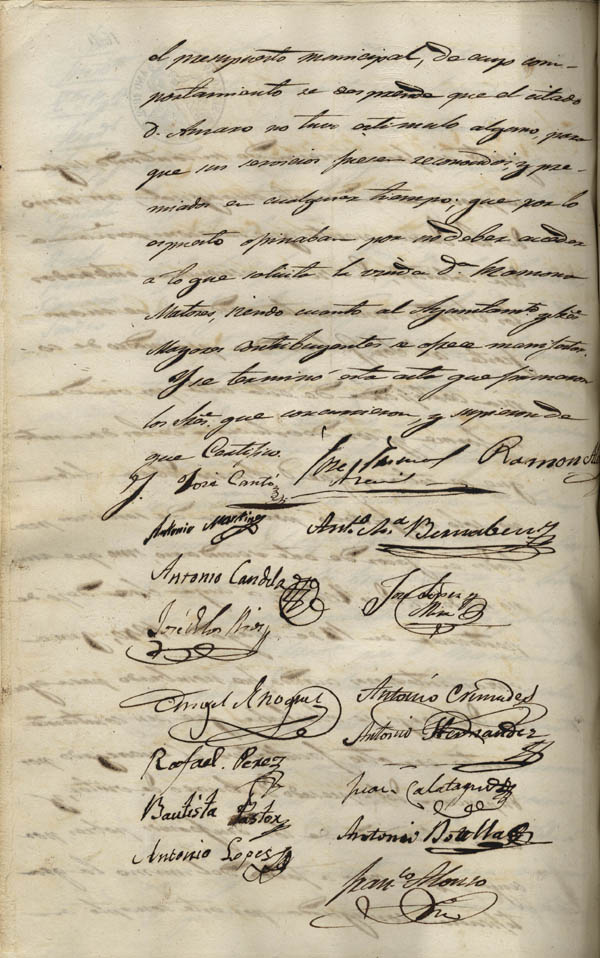 el presupuesto municipal, de cuyo com-
portamiento se desprende que el citado
D. Amaro no tuvo estimulo alguno, para
que sus servicios fuesen reconocidos y pre-
miados en cualquier tiempo; que por lo
espuesto opinaban por no deber acceder
á lo que solicita la viuda Dª Mamona
Matores, siendo cuanto al Ayuntamtº y Sres
Mayores contribuyentes se ofrece manifestar.
Y se terminó esta acta que firmaron
los Sres. que concurrieron, y supieron de
que Certifico.
José Cantó
José Pascual
Ramon
Antonio Martinez
Antº Mª Bernabeu
Antonio Candela
José Lopez
Mira
José de los Rios
Angel
Antonio Cremades
Antonio Hernandez
Rafael Perez
Juan Calatayud
Bautista Pastor
Antonio Botella
Antonio Lopes
Francº Alonso